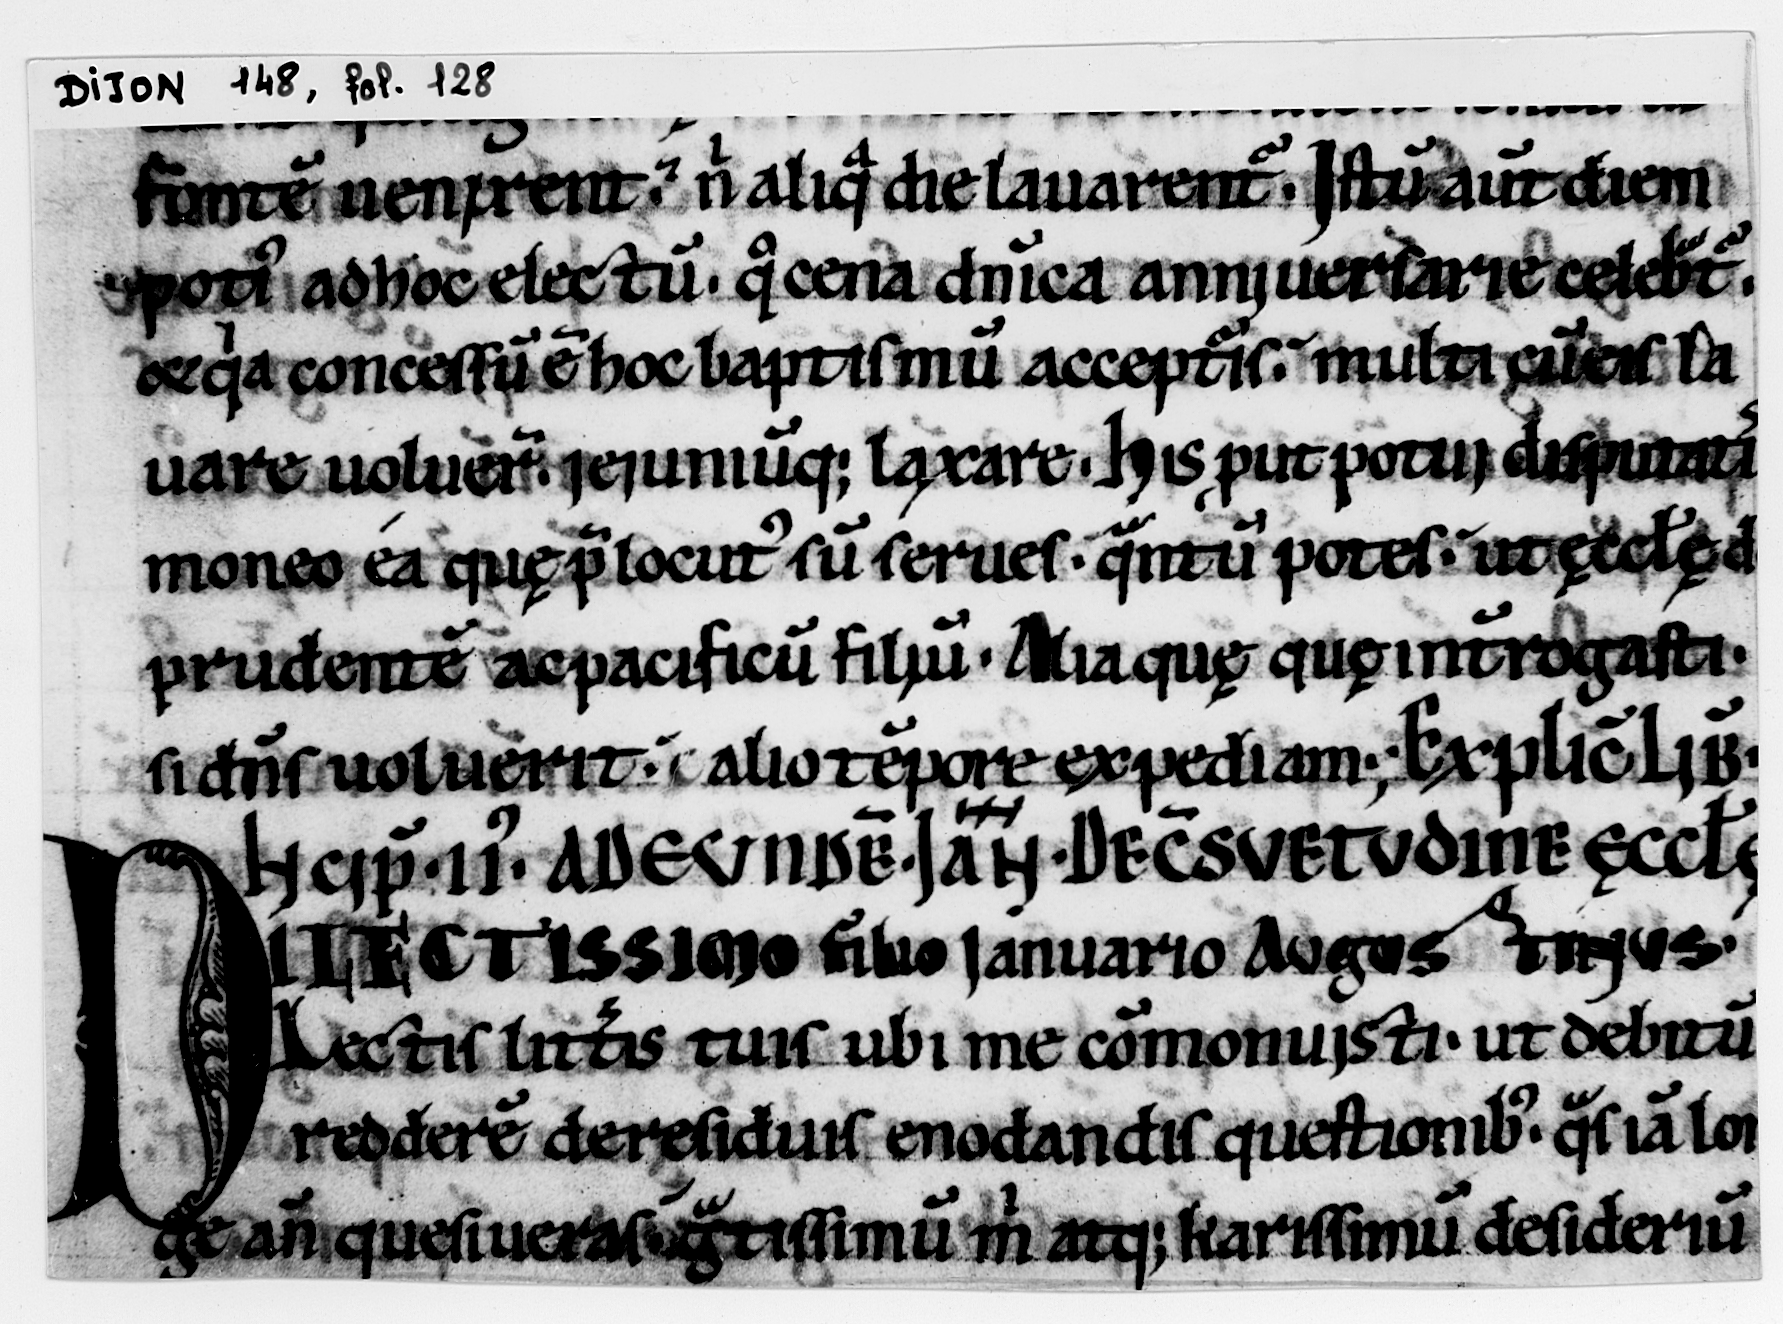 DiJON 148, fol. 128
fontē uenirent. n̄ aliq̄ die lauarent᷑. Istū aūt diem
potiꝰ ad hoc electū. q̊ cena dn̄ica anniuersarie celebr̄t᷑.
& qͥa concessū ē hoc baptismū accepturis. multi cū eis la
uare uoluer̄. ieiuniūq; laxare. His put potui disputatis
moneo ea quę p̄locutꝰ sū serues. qᷓntū potes. ut ęccl̄ę d
prudentē ac pacificū filiū. Alia quę quę int̄rogasti.
si dn̄s uoluerit. alio tēpore expediam; Explic̄ Lib̄.
Incip̄. II. AD EUNDĒ. IAN̄. DE C̄SVETVDINE ĘCCL̄Ę
DILECTISSIMO filio Ianuario Augustinus.
Lectis litt̄is tuis ubi me cōmonuisti. ut debitū
redderē de residuis enodandis questionibꝰ. qᷓs iā lon
ge an̄ quesiueras. gᷓtissimū m̍ atq; karissimū desideriū